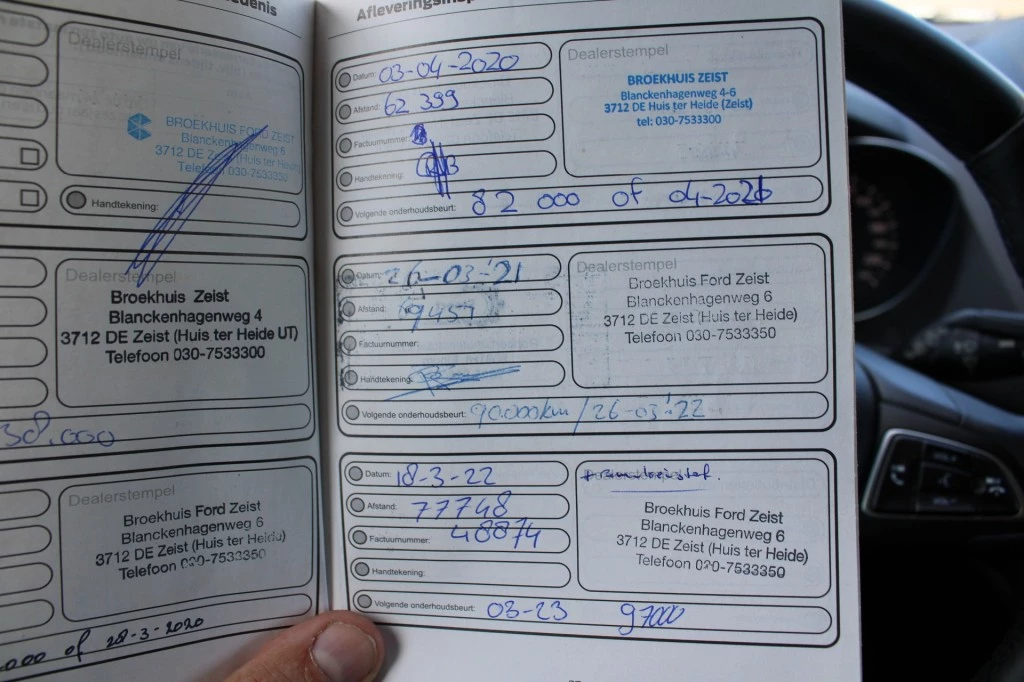 Dealerstempel
BROEKHUIS FORD ZEIST
Blanckenhagenweg 6
3712 DE Zeist (Huis ter Heide
030-7533350
Handtekening:
Dealerstempel
Broekhuis Zeist
Blanckenhagenweg 4
3712 DE Zeist (Huis ter Heide UT)
Telefoon 030-7533300
38.000
Dealerstempel
Broekhuis Ford Zeist
Blanckenhagenweg 6
3712 DE Zeist (Huis ter Heide)
Telefoon 030-7533350
000 of 28-3-2020
Datum: 03-04-2020
Afstand: 62 399
Factuurnummer:
Handtekening:
Volgende onderhoudsbeurt: 82 000 of 04-2021
Dealerstempel
BROEKHUIS ZEIST
Blanckenhagenweg 4-6
3712 DE Huis ter Heide (Zeist)
tel: 030-7533300
Datum: 26-03-'21
Afstand:
Factuurnummer:
Handtekening:
Volgende onderhoudsbeurt: 90.000km / 26-03-'22
Dealerstempel
Broekhuis Ford Zeist
Blanckenhagenweg 6
3712 DE Zeist (Huis ter Heide)
Telefoon 030-7533350
Datum: 18-3-22
Afstand: 77748
Factuurnummer: 48874
Handtekening:
Volgende onderhoudsbeurt: 03-23 97000
Broekhuis Ford Zeist
Blanckenhagenweg 6
3712 DE Zeist (Huis ter Heide)
Telefoon 030-7533350